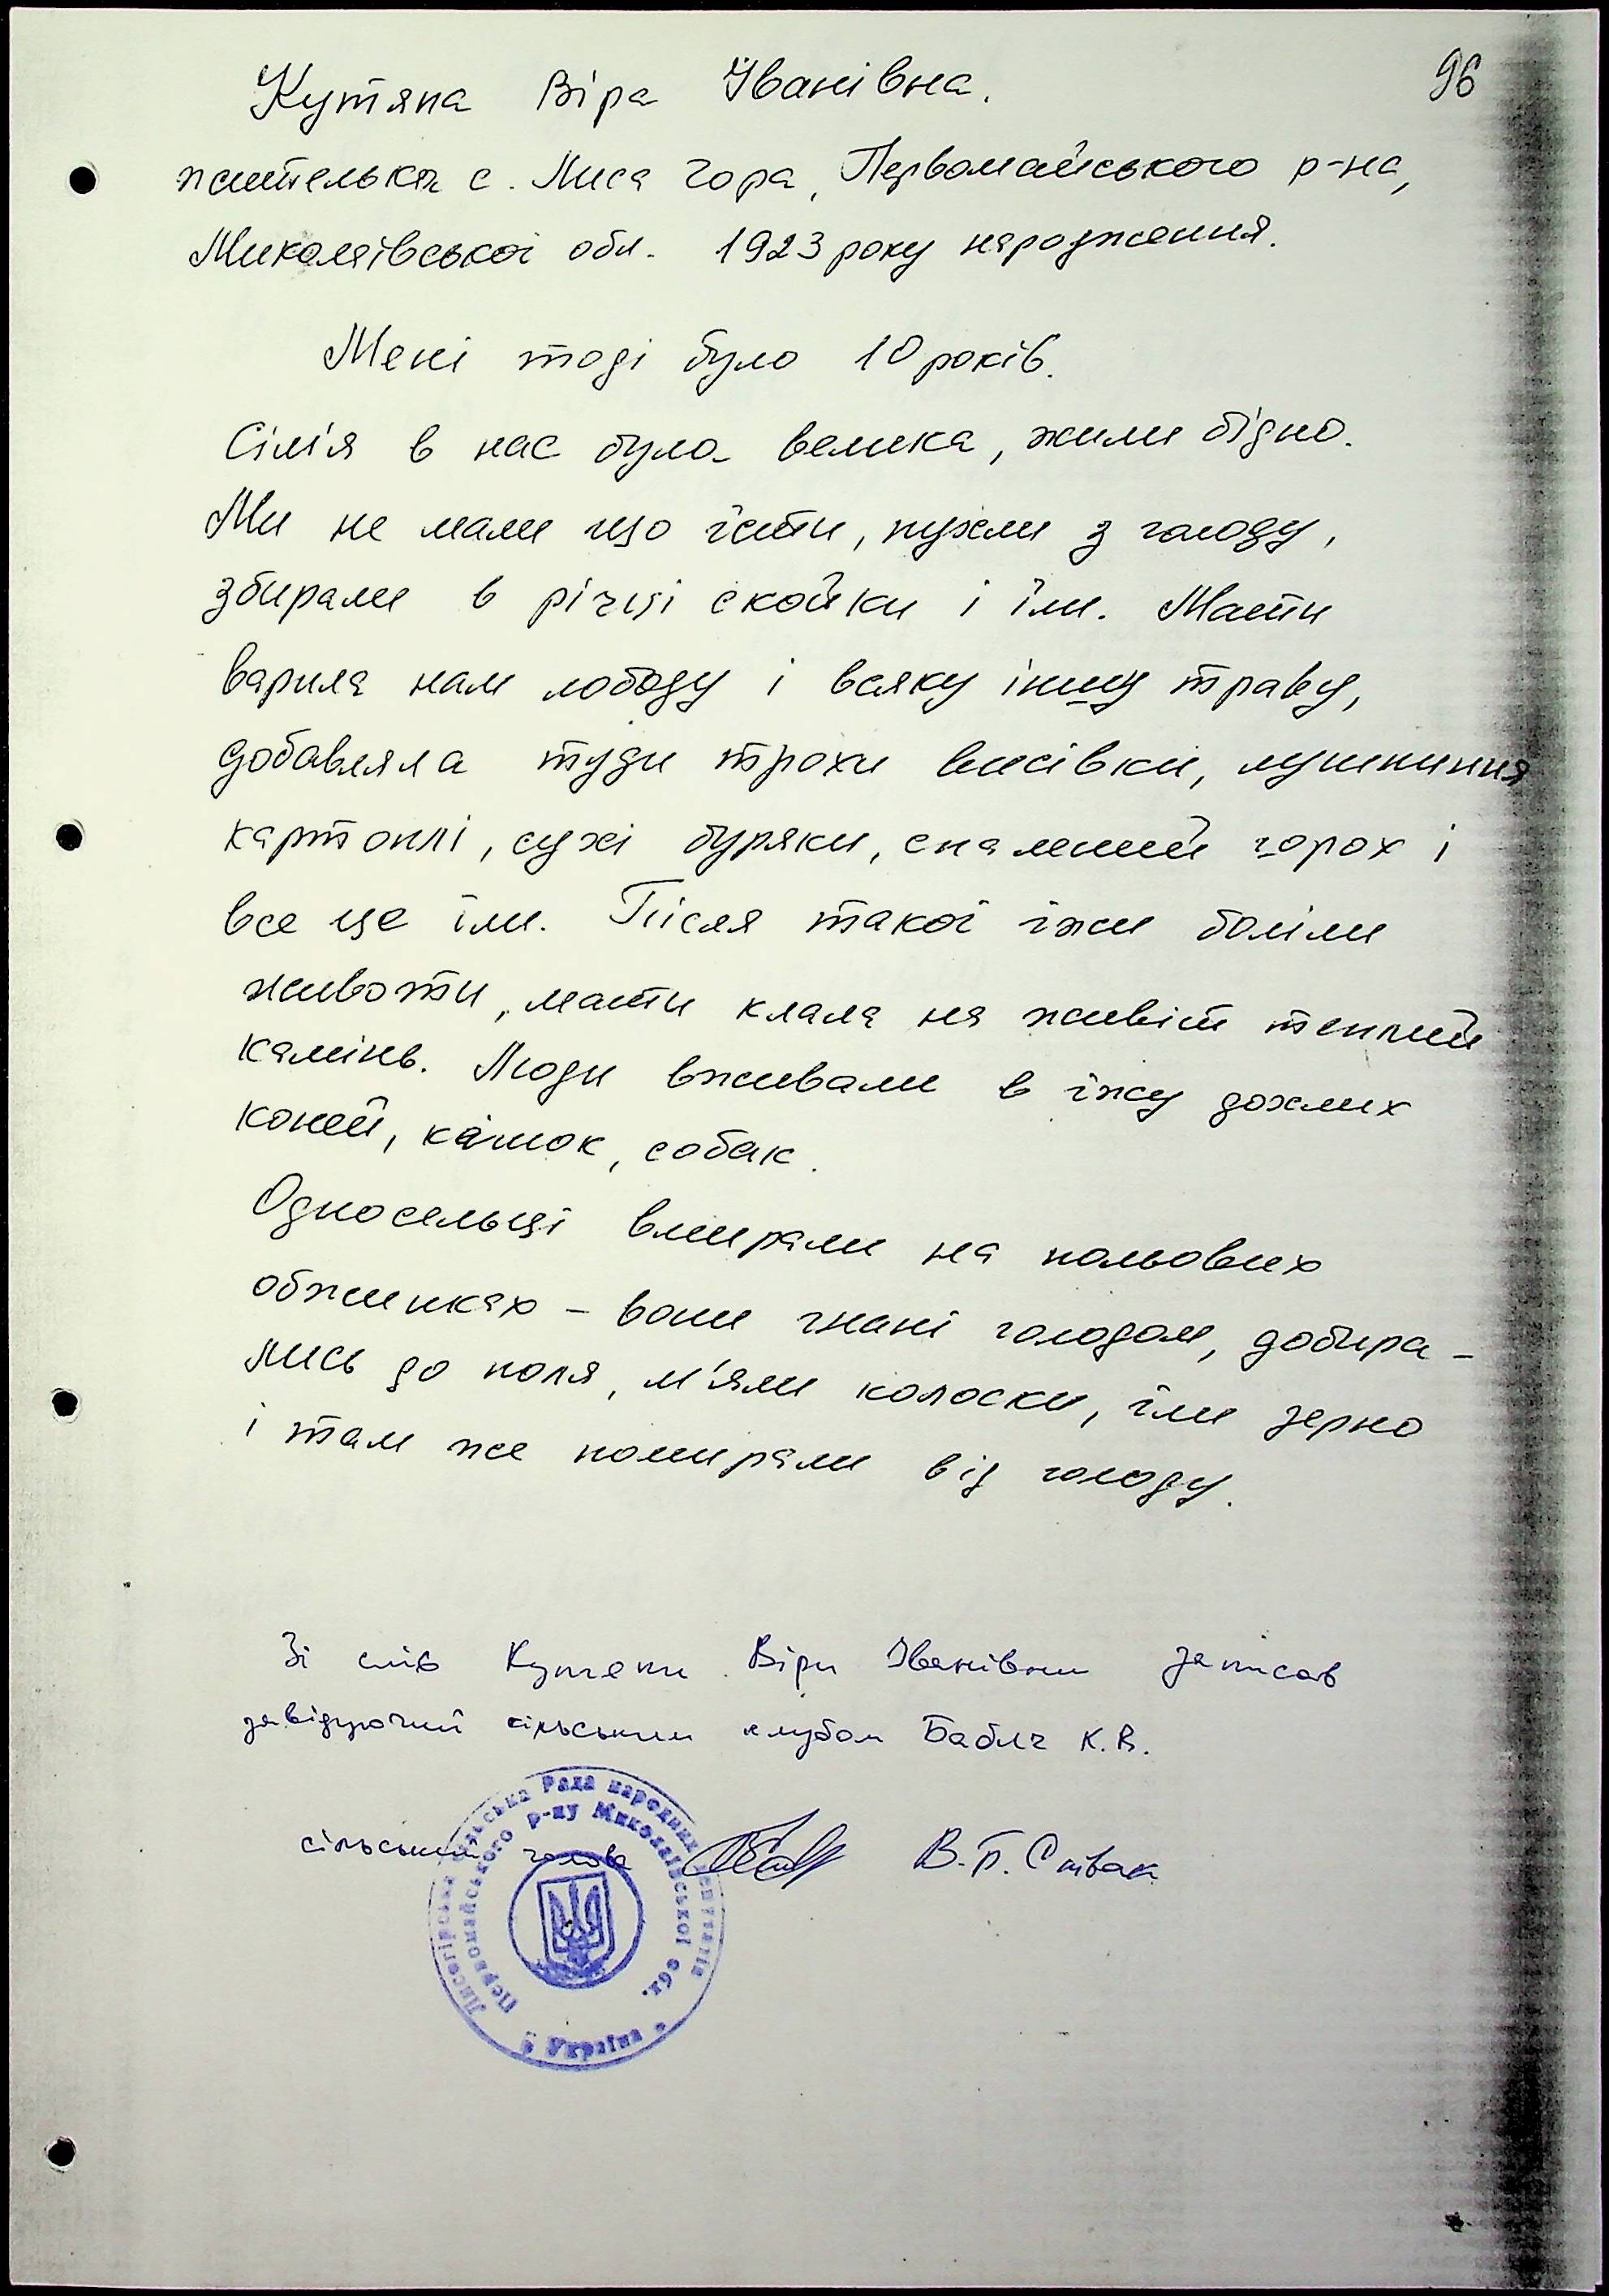 96
Кутяпа Віра Іванівна.
жителька с. Лиса Гора, Первомайського р-на,
Миколаївської обл. 1923 року народження.
Мені тоді було 10 років.
Сім'я в нас була велика, жили бідно.
Ми не мали що їсти, пухли з голоду,
збирали в річці скойки і їли. Мати
варила нам лободу і всяку іншу траву,
добавляла туди трохи висівки, лушпиння
картоплі, сухі буряки, спалений горох і
все це їли. Після такої їжи боліли
животи, мати клала на живіт теплий
камінь. Люди вживали в їжу дохлих
коней, кішок, собак.
Односельці вмирали на польових
обжинках – вони гнані голодом, добира-
лись до поля, м'яли колоски, їли зерно
і там же помирали від голоду.
Зі слів Кутяпи Віри Іванівни записав
завідуючий сільським клубом Бабич К.В.
сільський голова В.П. Співак
Лисогірська сільська Рада народних депутатів
Первомайського р-ну Миколаївської обл.
Україна